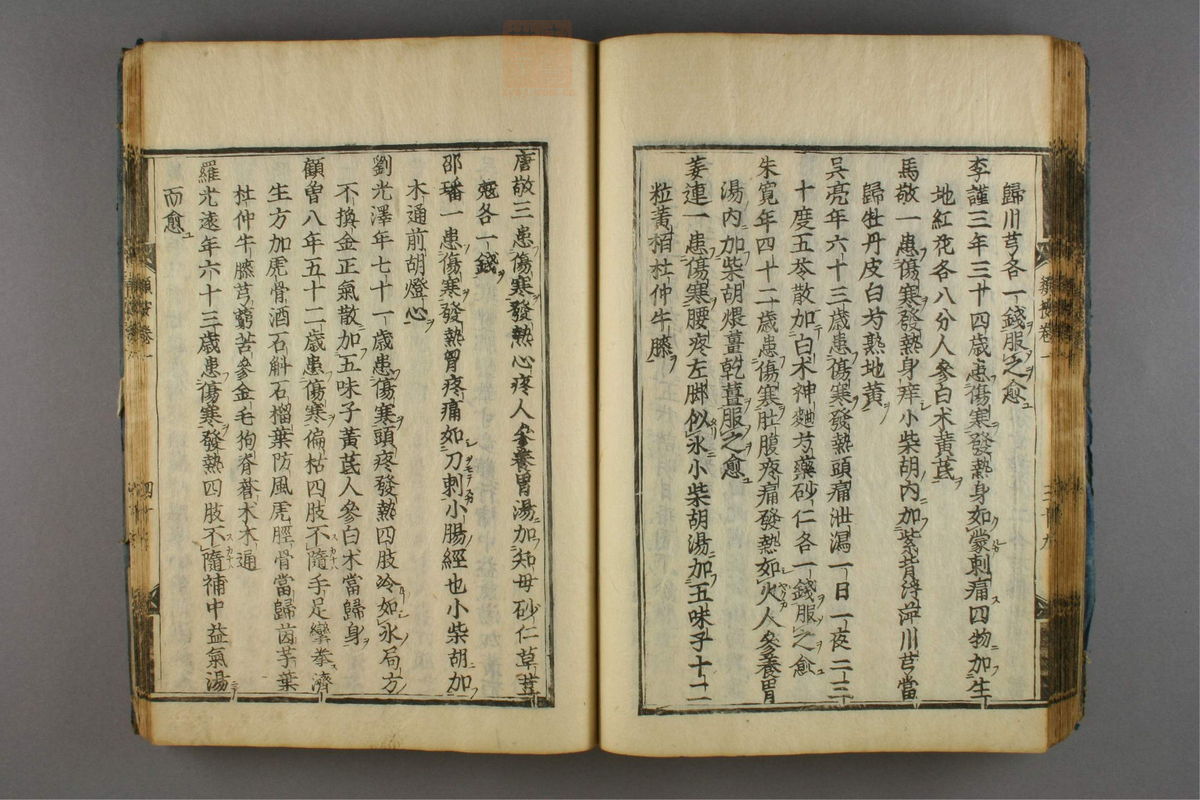 歸川芎各一錢服之愈
李謹三年三十四歲患傷寒發熱身如蒙刺痛四物加生
地紅花各八分人參白朮黃芪
馬敬一患傷寒發熱身痒小柴胡內加紫背浮萍川芎當
歸牡丹皮白芍熟地黃
吳亮年六十三歲患傷寒發熱頭痛泄瀉一日一夜二三
十度五苓散加白朮神麯芍藥砂仁各一錢服之愈
朱寬年四十二歲患傷寒肚腹疼痛發熱如火人參養胃
湯內加柴胡煨薑乾薑服之愈
姜連一患傷寒腰疼左脚似氷小柴胡湯加五味子十二
粒黃栢杜仲牛膝
唐敬三患傷寒發熱心疼人參養胃湯加知母砂仁草荳
蔻各一錢
邵璠一患傷寒發熱胃疼痛如刀刺小腸經也小柴胡加
木通前胡燈心
劉光澤年七十一歲患傷寒頭疼發熱四肢冷如氷局方
不換金正氣散加五味子黃芪人參白朮當歸身
顧曾八年五十二歲患傷寒偏枯四肢不隨手足攣拳濟
生方加虎骨酒石斛石榴葉防風虎脛骨當歸茵芋葉
杜仲牛膝芎藭苦參金毛狗脊蒼朮木通
羅光遠年六十三歲患傷寒發熱四肢不隨補中益氣湯
而愈